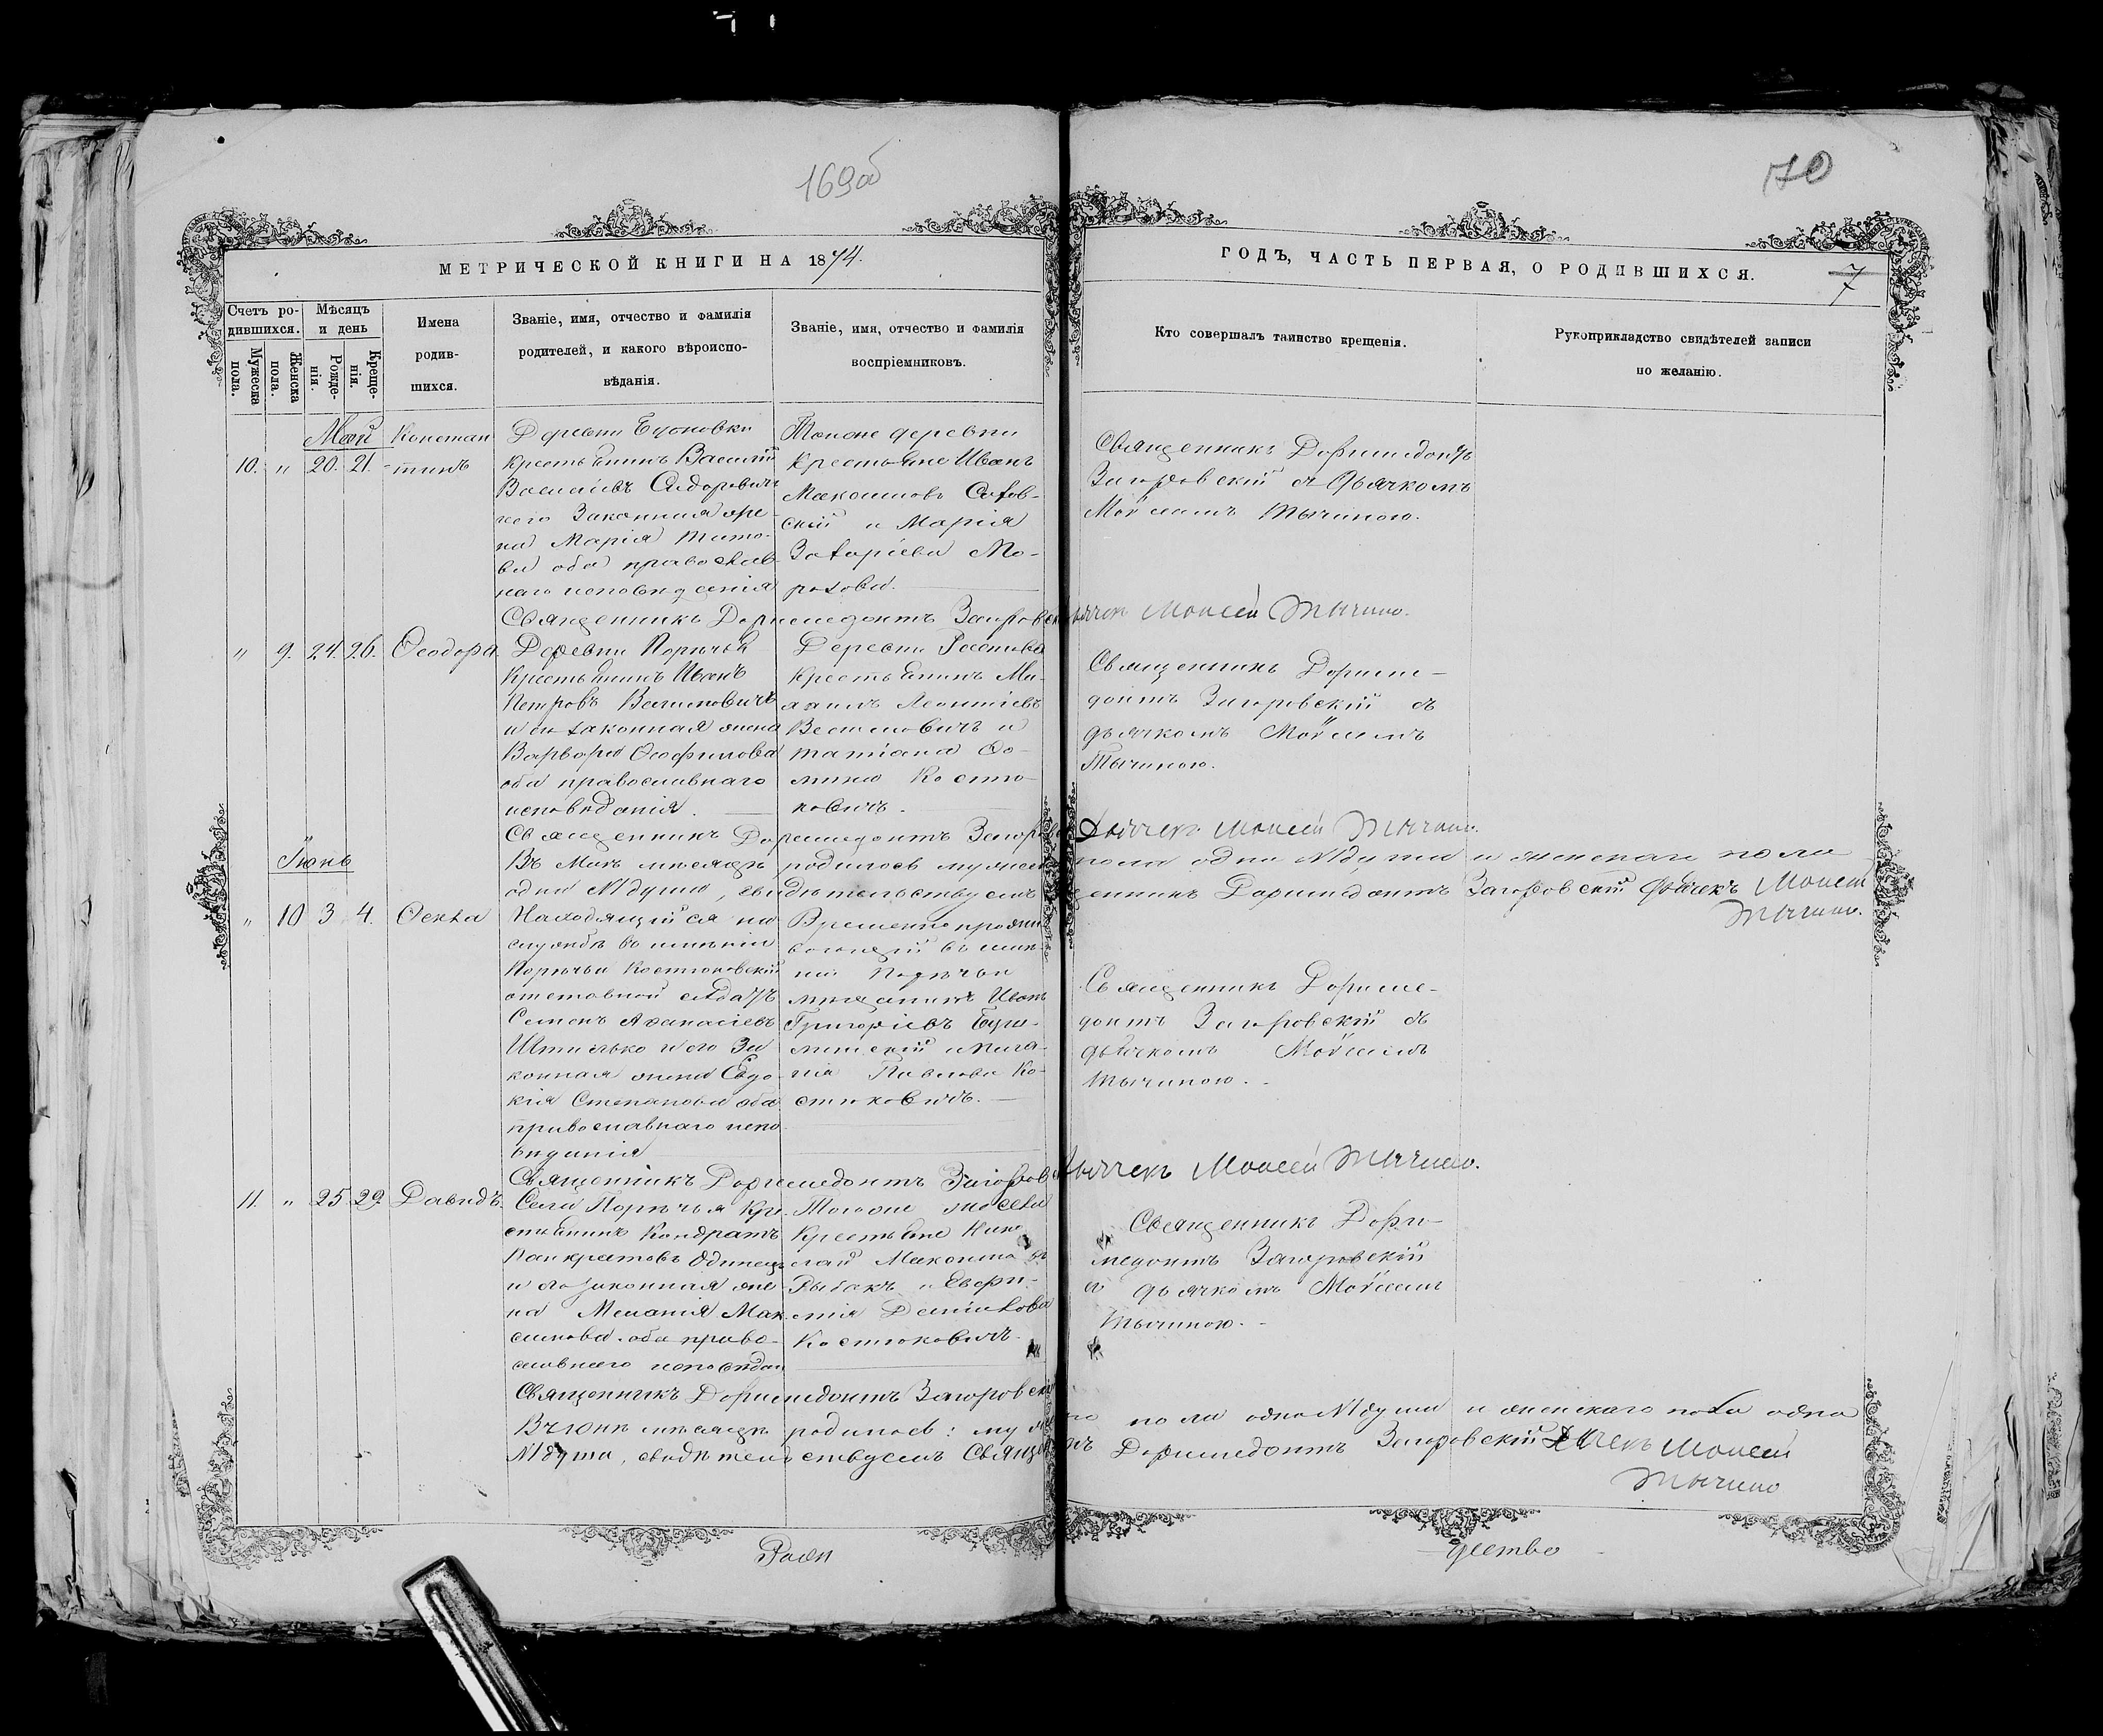 169об
170
МЕТРИЧЕСКОЙ КНИГИ НА 1874.
ГОДЪ, ЧАСТЬ ПЕРВАЯ, О РОДИВШИХСЯ.
7
Счетъ ро-
дившихся.
Мужеска пола.
Женска пола.
Мѣсяцъ
и день
Рожде-
нія.
Креще-
нія.
Имена
родив-
шихся.
Званіе, имя, отчество и фамилія
родителей, и какого вѣроиспо-
вѣданія.
Званіе, имя, отчество и фамилія
воспріемниковъ.
Кто совершалъ таинство крещенія.
Рукоприкладство свидѣтелей записи
по желанію.
Май
10. " 20. 21.
Констан
-тинъ
Деревни
крестьянинъ Василій
Васильевъ Сидоровичъ
его Законная же-
на Марія Тито-
ва оба православ
наго исповѣданія
деревни
крестьяне Иванъ
Максимовъ
скій и Марія
Захаріева Мо-
розова.
Священникъ Доримедонтъ
Загоровскій съ Дьячкомъ
Моѵсеемъ Тычиною.
Священникъ Доримедонтъ Загоровскій
Дьячекъ Моисей Тычино.
" 9. 24. 26. Ѳеодора.
Деревни Порѣчья
крестьянинъ Иванъ
Петровъ
и его законная жена
Варвара Ѳеофилова
оба православнаго
исповѣданія.
Деревни
крестьянинъ Ми-
хаилъ Леонтіевъ
и
Татіана Ѳо-
мина Костю-
ковичъ.
Священникъ Дориме-
донтъ Загоровскій съ
дьячкомъ Моѵсеемъ
Тычиною.
Священникъ Доримедонтъ Загоровскій
Дьячекъ Моисей Тычино.
Іюнь
Въ Маѣ мѣсяцѣ родилось мужеска пола одна №1 душа и женскаго пола
одна №1 душа, свидѣтельствуемъ Священникъ Доримедонтъ Загоровскій Дьячекъ Моисей
Тычино.
" 10 3 4. Ѳекла
Находящійся на
службѣ во имѣніи
Порѣчьи Костюковскій
отставной солдатъ
Семенъ Аѳанасіевъ
и его За
конная жена Евдо-
кія Степанова оба
православнаго испо
вѣданія
Временно прожи
вающій въ имѣ-
ніи Порѣчьи
мѣщанинъ Иванъ
Григоріевъ
и Пела-
гія Павлова Ко-
стюковичъ.
Священникъ Дориме-
донтъ Загоровскій съ
дьячкомъ Моѵсеемъ
Тычиною.
Священникъ Доримедонтъ Загоровскій
Дьячекъ Моисей Тычино.
11. " 25. 29. Давидъ
Села Порѣчья Кре
стьянинъ Кондратъ
Панкратовъ Одинецъ
и его законная же
на Меланія Мак
симова. оба право-
славнаго исповѣдан
Того же села
крестьяне Нико
лай Максимовъ
Рыбакъ и Евфи-
мія
Костюковичъ.
Священникъ Дори-
медонтъ Загоровскій
съ дьячкомъ Моѵсеемъ
Тычиною.
Священникъ Доримедонтъ Загоровскій
Въ Іюнѣ мѣсяцѣ родилось: мужескаго пола одна №1 душа и женскаго пола одна
№1 душа, свидѣтельствуемъ Священникъ Доримедонтъ Загоровскій Дьячекъ Моисей
Тычино
Рож
дество